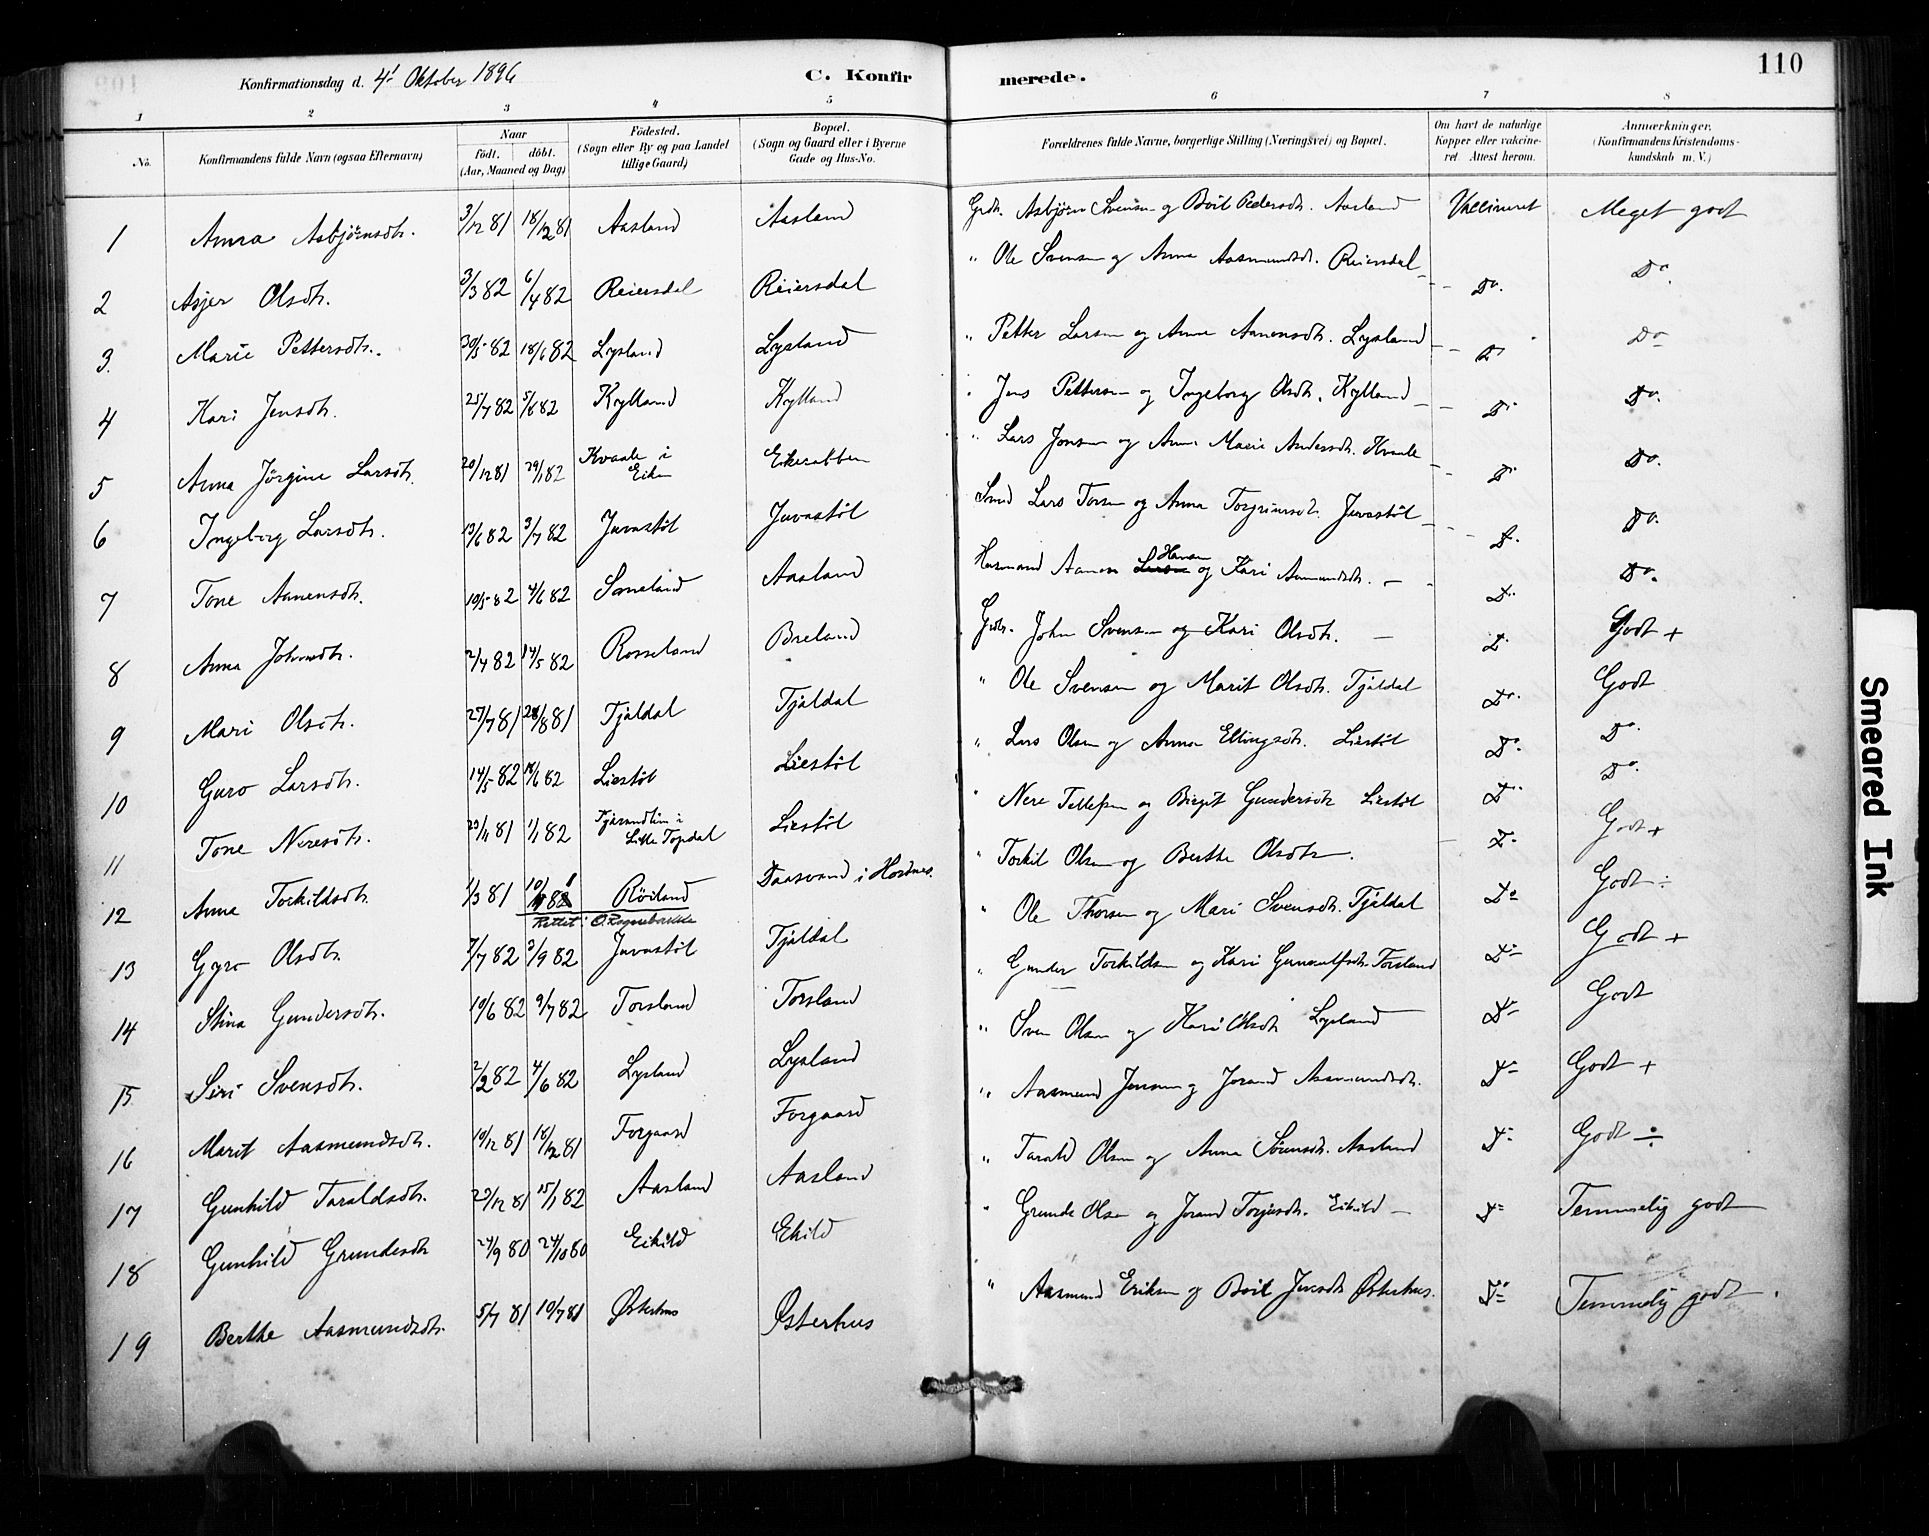 Konfirmationsdag d. 4' Oktober 1896
C. Konfirmerede.
110
1 2 3 4 5 6 7 8
No.
Konfirmandens fulde Navn (ogsaa Efternavn)
Naar
födt. döbt.
(Aar, Maaned og Dag)
Födested.
(Sogn eller By og paa Landet
tillige Gaard)
Bopæl.
(Sogn og Gaard eller i Byerne
Gade og Hus-No.
Forældrenes fulde Navne, borgerlige Stilling (Næringsvei) og Bopæl.
Om havt de naturlige
Kopper eller vakcine-
ret Attest herom.
Anmærkninger.
(Konfirmandens Kristendoms-
kundskab m. V.)
1 Anna Asbjørnsdtr. 3/12 81 18/12 81 Aasland Aasland Grdbr. Asbjørn Svensen og Boil Pedersdtr. Aasland Vaccineret Meget godt
2 Asjer Olsdtr. 3/3 82 6/4 82 Reiersdal Reiersdal " Ole Svensen og Anna Aasmundsdt. Reiersdal Do. Do.
3. Marie Pettersdtr. 30/5 82 18/6 82 Lysland Lysland " Petter Larsen og Anne Aanensdtr. Lysland Do Do
4 Kari Jensdtr. 25/7 82 5/8 82 Kylland Kylland " Jens Pettersen og Ingeborg Olsdtr. Kylland Do Do.
5 Anna Jörgine Larsdtr. 20/12 81 29/1 82 Kvaale i Eiken Eikerabben " Lars Jonsen og Anne Marie Andersdtr. Kvaale Do Do.
6 Ingeborg Larsdtr. 13/6 82 3/7 82 Juvastøl Juvastøl Smed Lars Torsen og Anna Torgrimsdt. Juvastøl Do. Do.
7 Tone Aanensdtr. 10/5 82 4/6 82 Aasland Husmand Aanen Hansen og Kari Aamundsdtr. Do. Do.
8 Anna Johnsdtr. 2/4 82 14/5 82 Rosseland Breland Grdbr. John Svensen og Kari Olsdtr. Do. Godt +
9 Mari Olsdtr. 27/7 81 28/8 81 Tjaldal Tjaldal " Ole Svensen og Marit Olsdtr. Tjaldal Do. Godt
10 Guro Larsdtr. 14/5 82 18/6 82 Liestøl Liestøl " Lars Olsen og Anna Ellingsdtr. Liestøl Do. Do.
11 Tone Neresdtr. 20/11 81 1/1 82 Lille Topdal Liestøl " Nere Tellefsen og Birgit Gundersdtr Liestøl Do. Do.
12 Anne Torkildsdtr. 1/3 81 10/4 81 Röiland Daasvand i Hordnes. " Torkil Olsen og Berthe Olsdtr. Do. Godt +
Rettet: O. Rognebakke
13 Gyro Olsdtr. 7/7 82 3/9 82 Juvastøl Tjaldal " Ole Thorsen og Mari Svensdtr. Tjaldal Do Godt ÷
14 Stina Gundersdtr. 10/6 82 9/7 82 Torsland Torsland " Gunder Torkildsen og Kari Gunnulfsdtr. Torsland Do Godt +
15 Siri Svensdtr. 2/2 82 4/6 82 Lysland Lysland " Sven Olsen og Kari Olsdtr Lysland Do Godt
16 Marit Aasmundsdtr. 10/12 81 18/12 81 Forgaard Forgaard " Aasmund Jensen og Jorand Aasmundsdtr. Do Godt +
17 Gunhild Taraldsdtr. 29/12 81 15/1 82 Aasland Aasland " Tarald Olsen og Anna Sørensdtr. Aasland Do Godt ÷
18 Gunhild Grundesdtr 24/9 80 24/10 80 Eikild Ekild " Grunde Olsen og Jorand Torjusdtr. Eikild Do Temmelig godt
19 Berthe Aasmundsdtr. 5/7 81 10/7 81 Østerhus Østerhus " Aasmund Eriksen og Boil Jensdtr Østerhus. Do Temmelig godt.
Smeared Ink